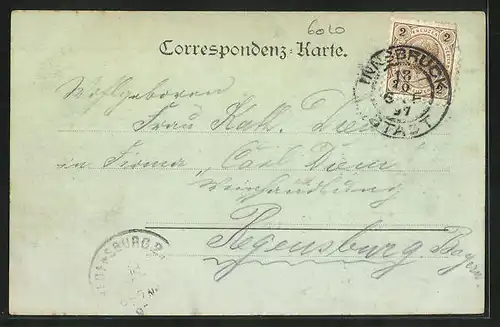 6020
Correspondenz-Karte.
2 KREUZER 2
INNSBRUCK
13
10
97
STADT
Wohlgeboren
Frau Kath. Diem
in Firma „Carl Diem
Weinhandlung
Regensburg. Bayern.
REGENSBURG 2